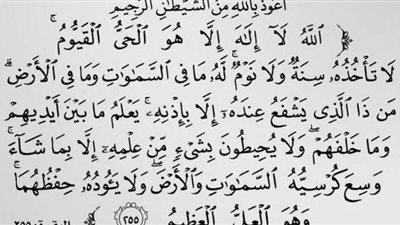 أعوذ بالله من الشيطان الرجيم
ٱللَّهُ لَآ إِلَٰهَ إِلَّا هُوَ ٱلۡحَيُّ ٱلۡقَيُّومُۚ
لَا تَأۡخُذُهُۥ سِنَةٞ وَلَا نَوۡمٞۚ لَّهُۥ مَا فِي ٱلسَّمَٰوَٰتِ وَمَا فِي ٱلۡأَرۡضِۗ
مَن ذَا ٱلَّذِي يَشۡفَعُ عِندَهُۥٓ إِلَّا بِإِذۡنِهِۦۚ يَعۡلَمُ مَا بَيۡنَ أَيۡدِيهِمۡ
وَمَا خَلۡفَهُمۡۖ وَلَا يُحِيطُونَ بِشَيۡءٖ مِّنۡ عِلۡمِهِۦٓ إِلَّا بِمَا شَآءَۚ
وَسِعَ كُرۡسِيُّهُ ٱلسَّمَٰوَٰتِ وَٱلۡأَرۡضَۖ وَلَا يَـُٔودُهُۥ حِفۡظُهُمَاۚ
وَهُوَ ٱلۡعَلِيُّ ٱلۡعَظِيمُ ٢٥٥